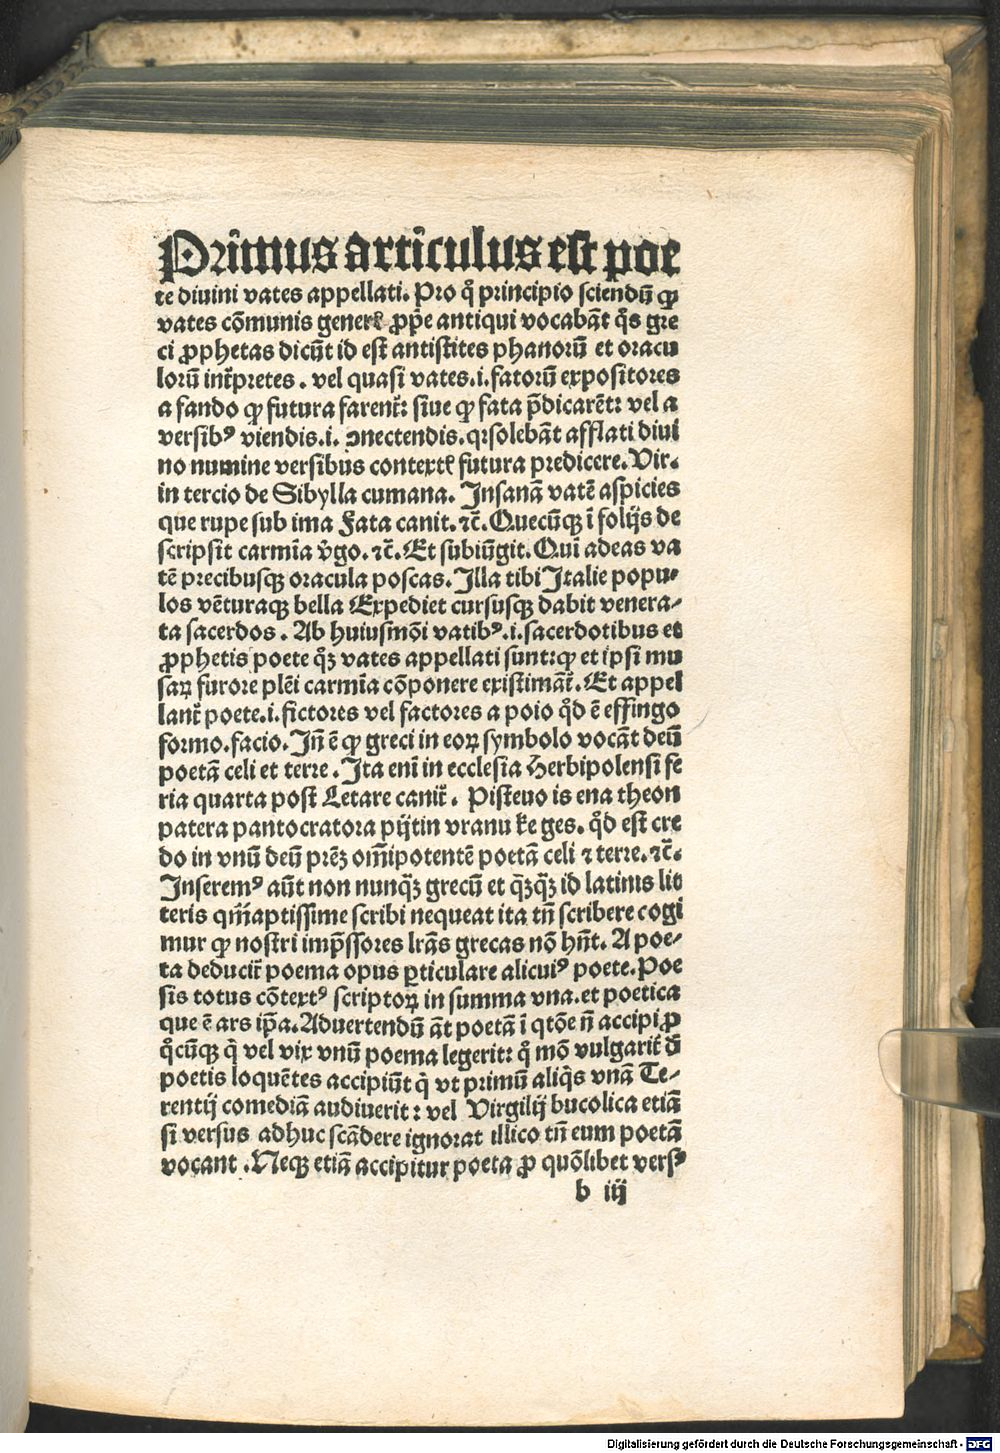 Primus articulus est poe
te diuini vates appellati. Pro q̄ principio sciendū ꝙ
vates cōmunis generꝭ ꝓp̄e antiqui vocabāt q̄s gre
ci ꝓphetas dicūt id est antistites phanorū et oracu
lorū int̄pretes . vel quasi vates.i.fatorū expositores
a fando ꝙ futura farent̄: siue ꝙ fata p̄dicarēt: vel a
versibꝰ viendis.i. ꝯnectendis.q:solebāt afflati diui
no numine versibus contextꝭ futura predicere. Vir.
in tercio de Sibylla cumana. Insanā vatē aspicies
que rupe sub ima Fata canit. ⁊c̄. Quecūqꝫ ī folijs de
scripsit carmīa v̄go. ⁊c̄. Et subiūgit. Quī adeas va
tē precibusqꝫ oracula poscas. Illa tibi Italie popu-
los vēturaqꝫ bella Expediet cursusqꝫ dabit venera-
ta sacerdos . Ab huiusmōi vatibꝰ.i.sacerdotibus et
ꝓphetis poete q̄ꝫ vates appellati sunt:ꝙ et ipsi mu
saꝝ furore plēi carmīa cōponere existimāt̄. Et appel
lant̄ poete.i.fictores vel factores a poio q̄d ē effingo
formo.facio. In̄ ē ꝙ greci in eoꝝ symbolo vocāt deū
poetā celi et terre . Ita enī in ecclesia Herbipolensi fe
ria quarta post Letare canit̄ . Pisteuo is ena theon
patera pantocratora pijtin vranu ke ges. q̄d est cre
do in vnū deū prēꝫ om̄ipotentē poetā celi ⁊ terre. ⁊c̄.
Inseremꝰ aūt non nunq̄ꝫ grecū et q̄ꝫq̄ꝫ id latinis lit
teris qm̄aptissime scribi nequeat ita tn̄ scribere cogi
mur ꝙ nostri imp̄ssores lrās grecas nō hn̄t. A poe-
ta deducit̄ poema opus ꝑticulare alicuiꝰ poete. Poe
sis totus cōtextꝰ scriptoꝝ in summa vna. et poetica
que ē ars ip̄a. Aduertendū āt poetā ī qtōe n̄ accipi ꝓ
q̄cūqꝫ q̄ vel vix vnū poema legerit: q̄ mō vulgarit̄ d̄
poetis loquētes accipiūt q̄ vt primū aliq̄s vnā Te-
rentij comediā audiuerit : vel Virgilij bucolica etiā
si versus adhuc scādere ignorat illico tn̄ eum poetā
vocant . Neqꝫ etiā accipitur poeta ꝓ quōlibet versꝰ
b iij
Digitalisierung gefördert durch die Deutsche Forschungsgemeinschaft - DFG